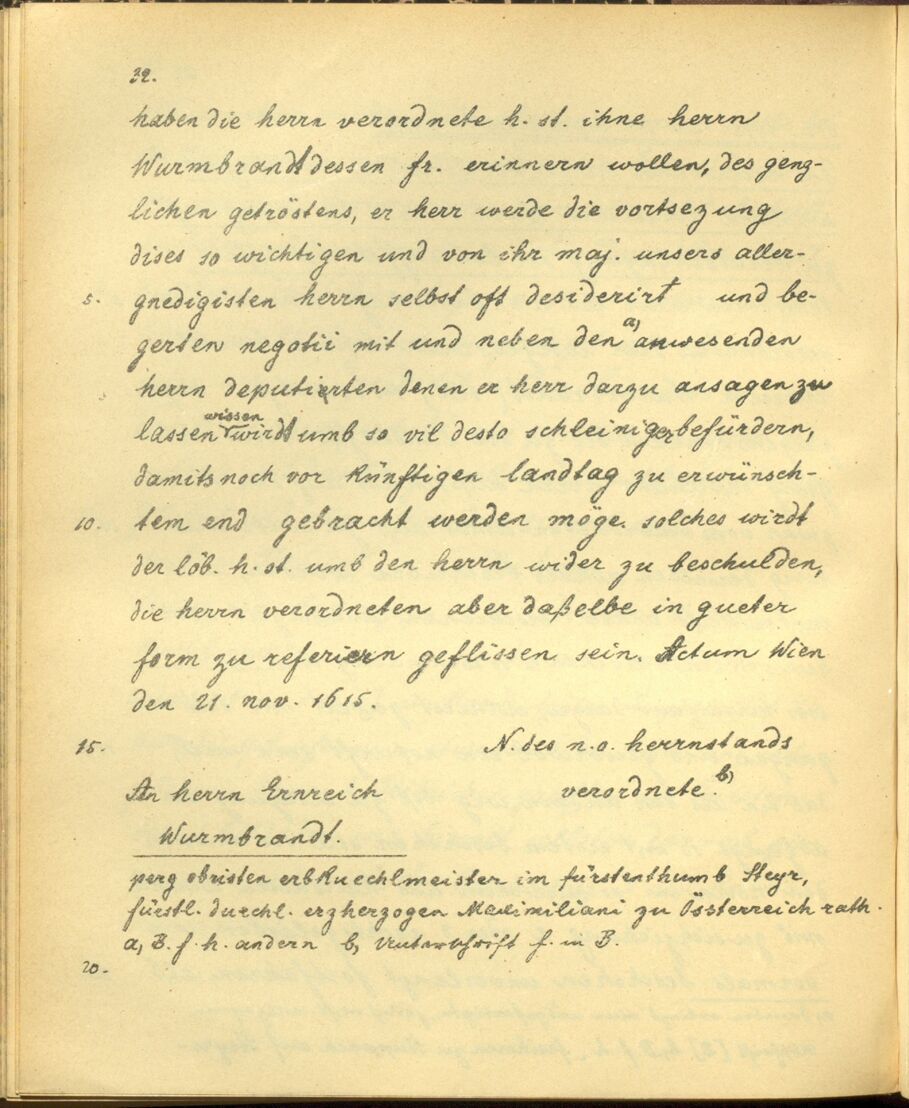 32.
haben die herrn verordnete h. st. ihne herrn
Wurmbrandt dessen fr. erinnern wollen, des genz-
lichen getröstens, er herr werde die vortsezung
dises so wichtigen und von ihr maj. unsers aller-
5. gnedigisten herrn selbst oft desiderirt und be-
gerten negotii mit und neben den a) anwesenden
herrn deputierten denen er herr darzu ansagen zu
lassen wissen wirdt umb so vil desto schleiniger befürdern,
damits noch vor künftigen landtag zu erwünsch-
10. tem end gebracht werden möge. solches wirdt
der löb. h. st. umb den herrn wider zu beschulden,
die herrn verordneten aber daßelbe in gueter
form zu referiern geflissen sein. Actum Wien
den 21. nov. 1615.
15. N. des n. o. herrnstands
An herrn Ernreich verordnete. b)
Wurmbrandt.
perg obristen erbkuechlmeister im fürstenthumb Steyr,
fürstl. durchl. erzherzogen Maximiliani zu Össterreich rath.
a, B. f. h. andern b, Unterschrift f. in B.
20.